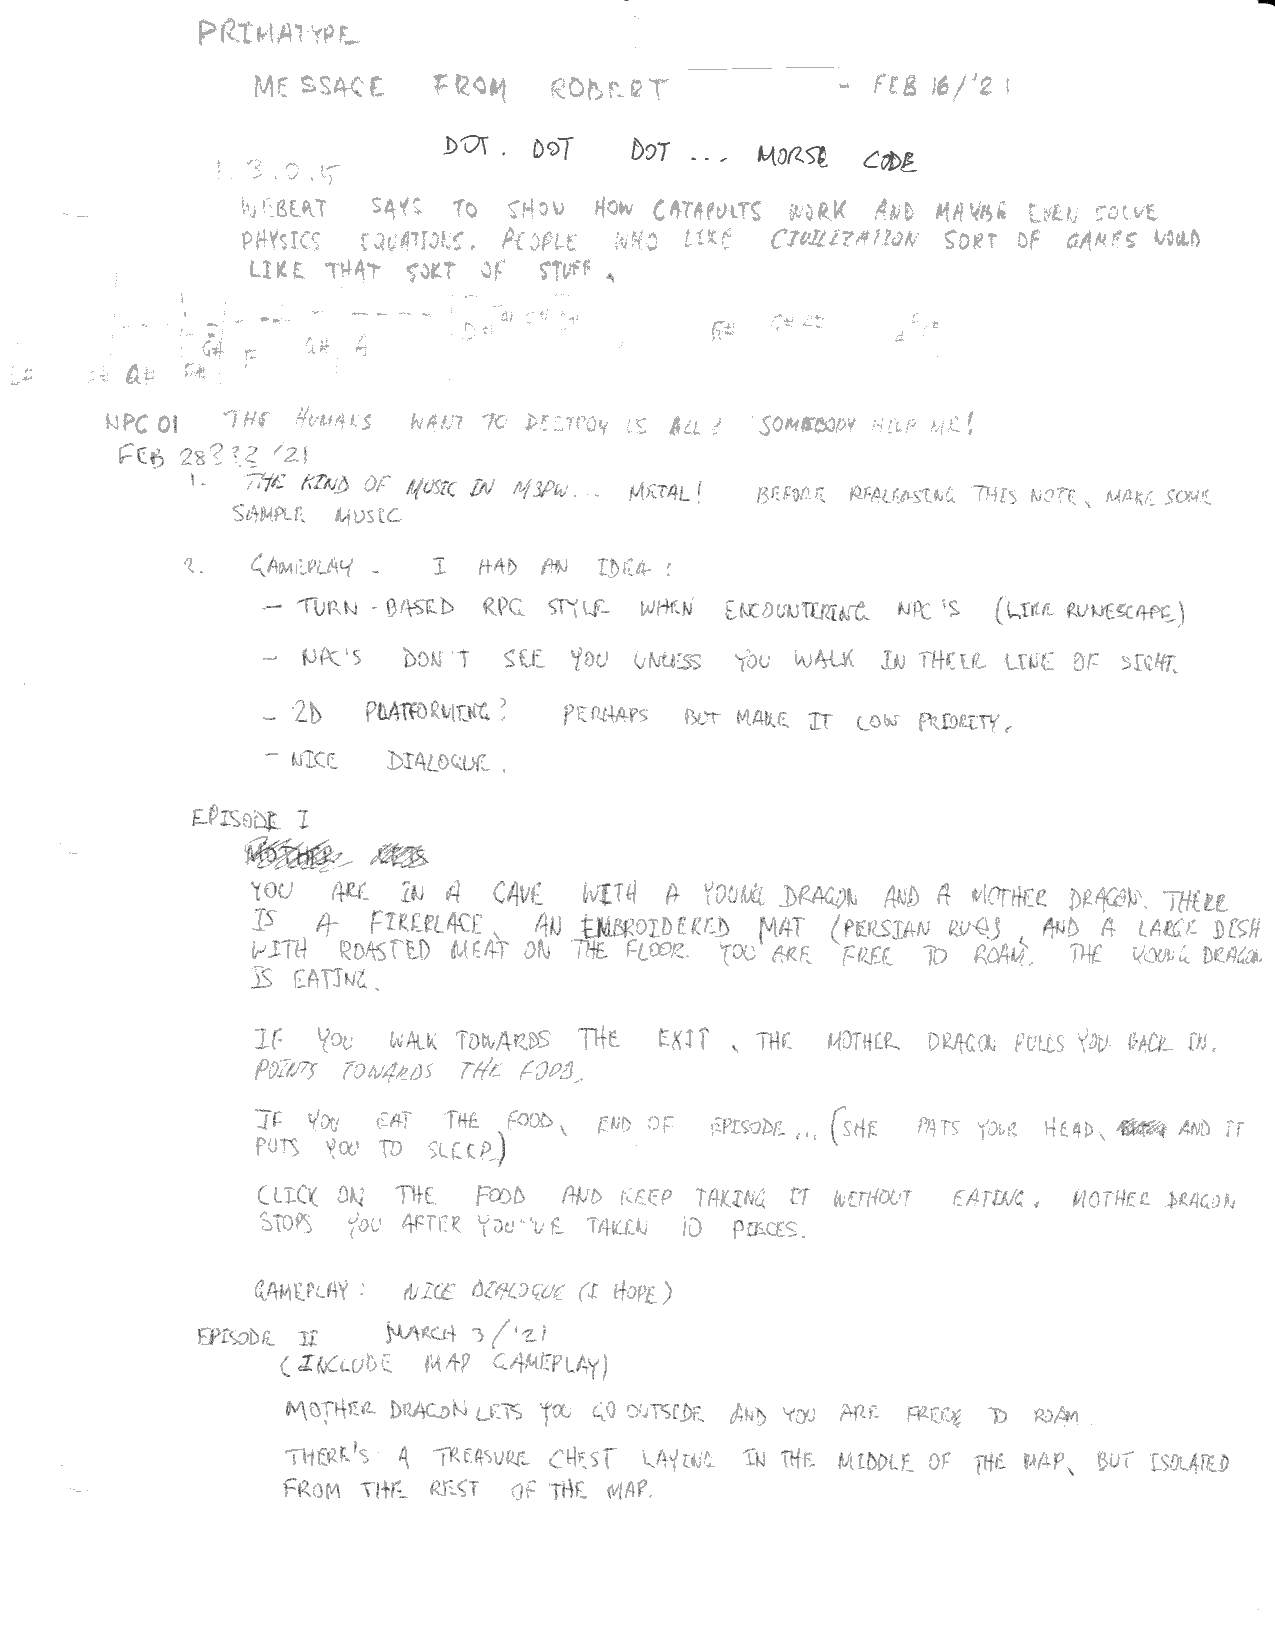 PRIMATYPE
MESSAGE FROM ROBERT - FEB 16/'21
DOT. DOT DOT ... MORSE CODE
1.3.0.5
WEBERT SAYS TO SHOW HOW CATAPULTS WORK AND MAYBE EVEN SOLVE
PHYSICS EQUATIONS. PEOPLE WHO LIKE CIVILIZATIION SORT OF GAMES WOULD
LIKE THAT SORT OF STUFF.
G# F G# A
G# F#
NPC 01 THE HUMANS WANT TO DESTROY US ALL! SOMEBODY HELP ME!
FEB 28??? '21
1. THE KIND OF MUSIC IN M3PW... METAL! BEFORE REALEASING THIS NOTE, MAKE SOME
SAMPLE MUSIC
2. GAMEPLAY - I HAD AN IDEA:
- TURN-BASED RPG STYLE WHEN ENCOUNTERING NPC'S (LIKE RUNESCAPE)
- NPC'S DON'T SEE YOU UNLESS YOU WALK IN THEIR LINE OF SIGHT.
- 2D PLATFORMING? PERHAPS BUT MAKE IT LOW PRIORITY.
- NICE DIALOGUE.
EPISODE I
YOU ARE IN A CAVE WITH A YOUNG DRAGON AND A MOTHER DRAGON. THERE
IS A FIREPLACE, AN EMBROIDERED MAT (PERSIAN RUG), AND A LARGE DISH
WITH ROASTED MEAT ON THE FLOOR. YOU ARE FREE TO ROAM. THE YOUNG DRAGON
IS EATING.
IF YOU WALK TOWARDS THE EXIT, THE MOTHER DRAGON PULLS YOU BACK IN.
POINTS TOWARDS THE FOOD.
IF YOU EAT THE FOOD, END OF EPISODE... (SHE PATS YOUR HEAD, AND IT
PUTS YOU TO SLEEP)
CLICK ON THE FOOD AND KEEP TAKING IT WITHOUT EATING. MOTHER DRAGON
STOPS YOU AFTER YOU'VE TAKEN 10 PIECES.
GAMEPLAY: NICE DIALOGUE (I HOPE)
EPISODE II MARCH 3/'21
(INCLUDE MAP GAMEPLAY)
MOTHER DRAGON LETS YOU GO OUTSIDE AND YOU ARE FREE TO ROAM.
THERE'S A TREASURE CHEST LAYING IN THE MIDDLE OF THE MAP, BUT ISOLATED
FROM THE REST OF THE MAP.